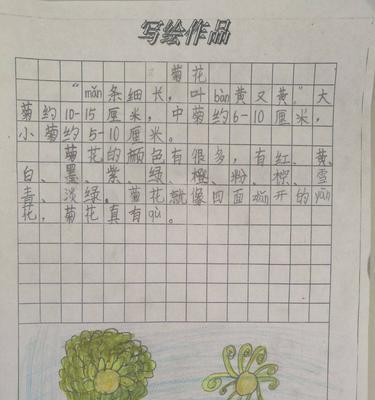 写绘作品
菊花
“mǎn条细长，叶bàn黄又黄”大
菊约10-15厘米，中菊约6-10厘米，
小菊约5-10厘米。
菊花的颜色有很多，有红、黄、
白、墨、紫、绿、橙、粉、棕、雪
青、淡绿。菊花就像四面zhàn开的yān
花，菊花真有qù。